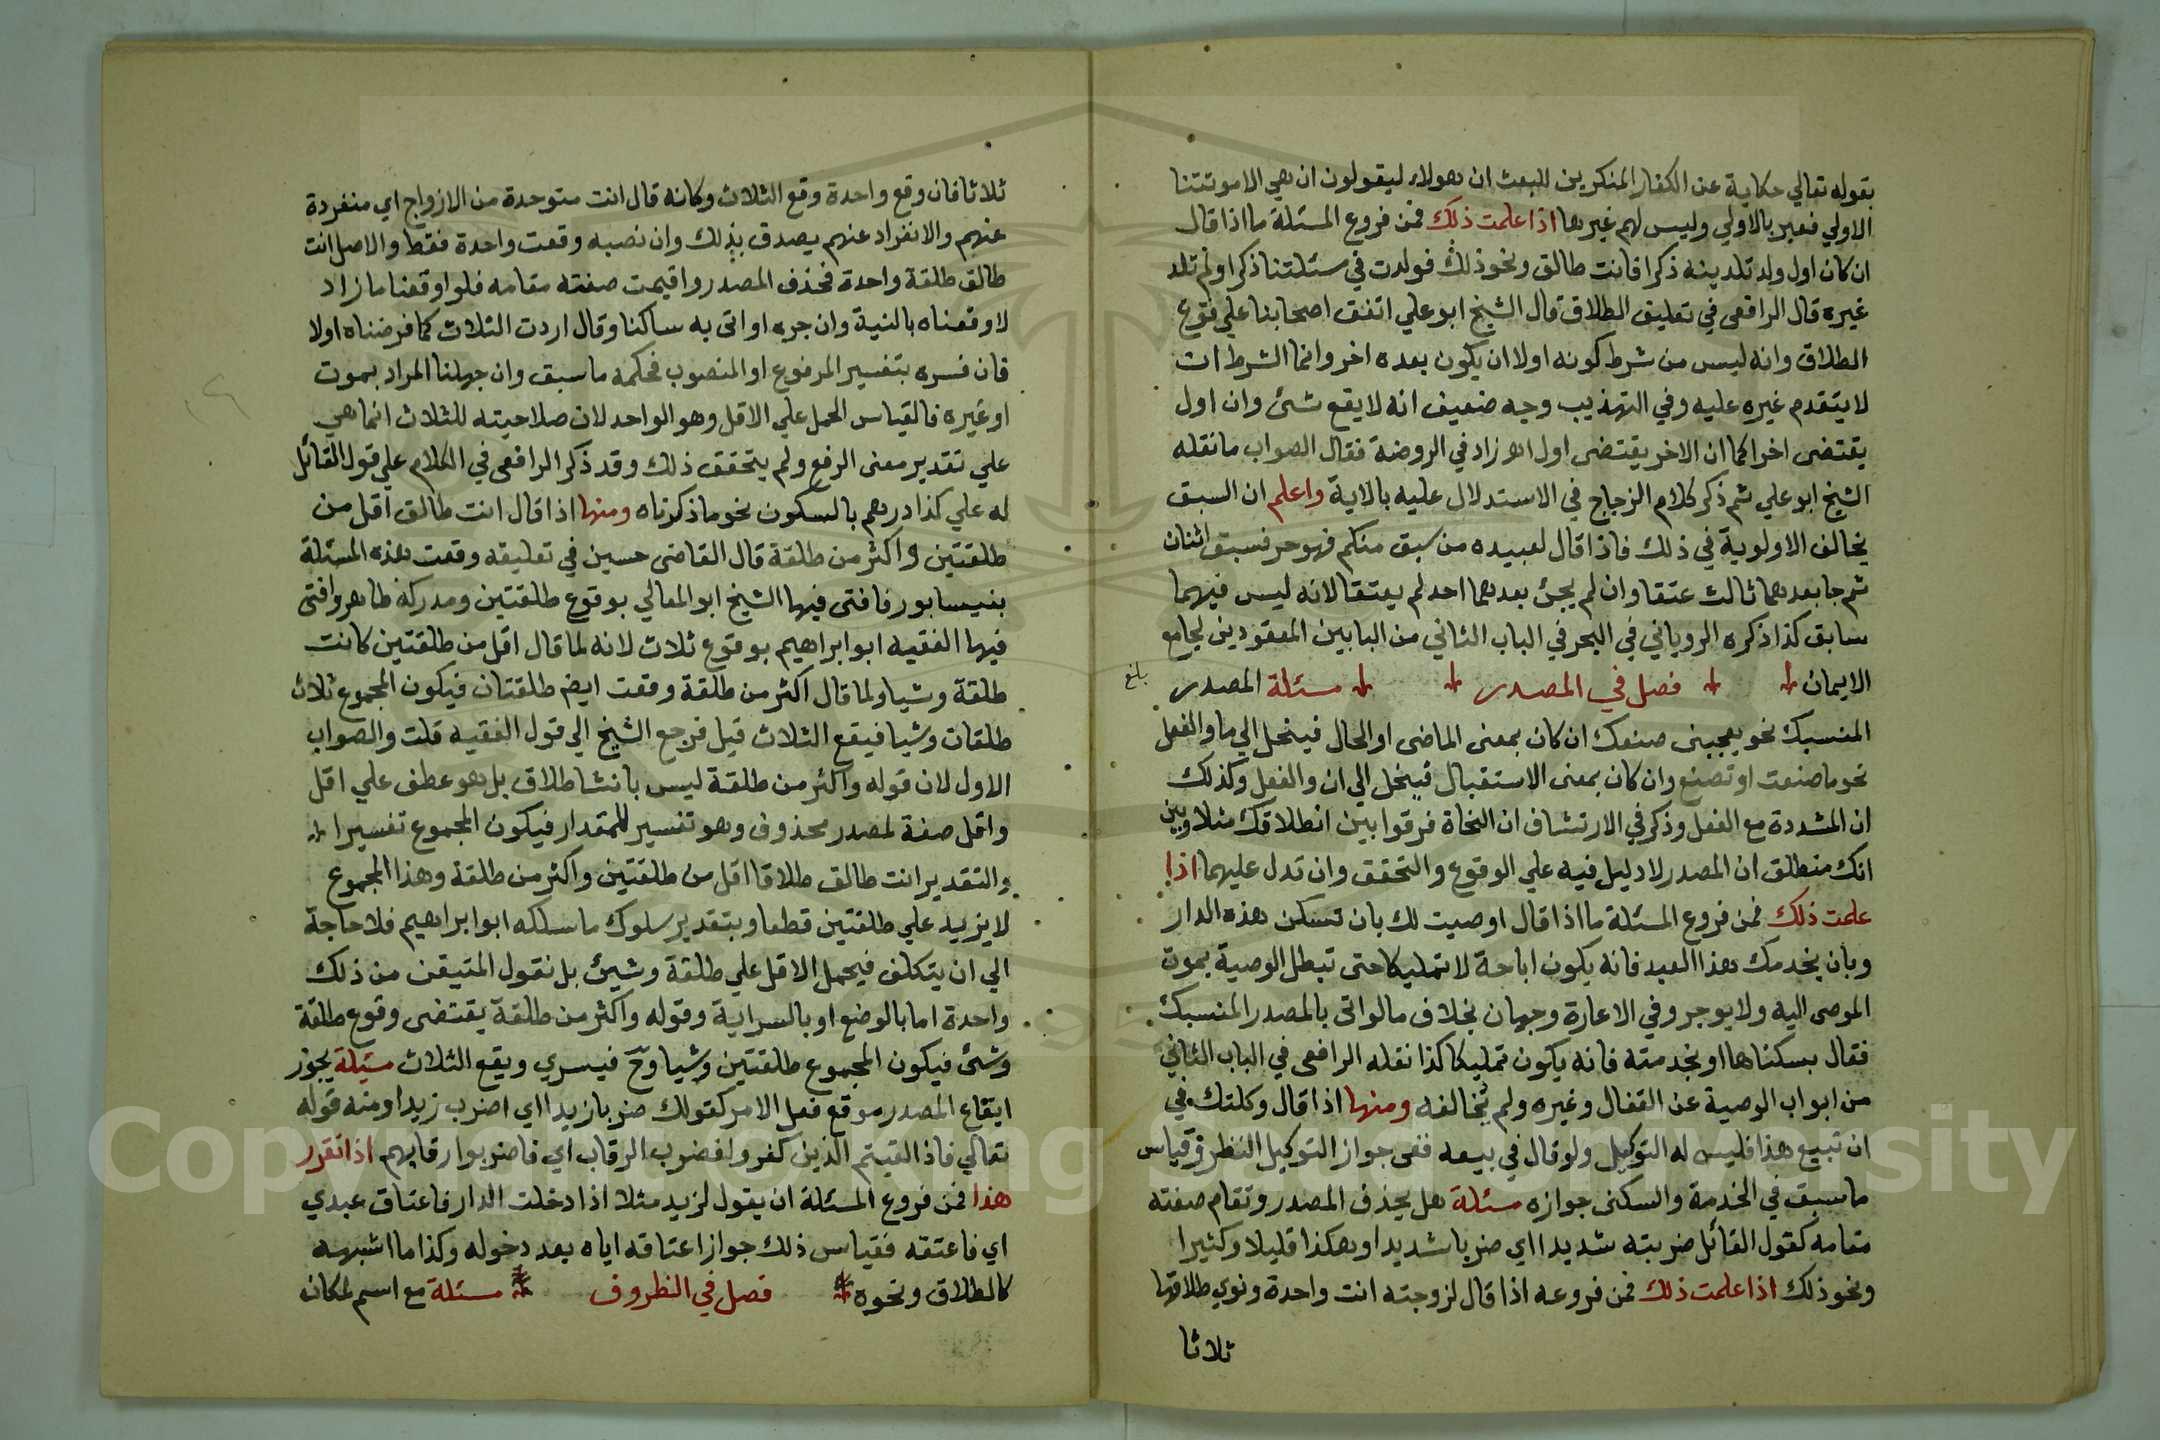 بقوله تعالي حكاية عن الكفار المنكرين للبعث ان هولاء ليقولون ان هي الا موتتنا
الاولي فعبر بالاولي وليس لهم غيرها اذا علمت ذلك فمن فروع المسئلة ما اذا قال
ان كان اول ولد تلدينه ذكرا فانت طالق ونحو ذلك فولدت في مسئلتنا ذكرا ولم تلد
غيره قال الرافعي في تعليق الطلاق قال الشيخ ابو علي اتفق اصحابنا علي وقوع
الطلاق وانه ليس من شرط كونه اولا ان يكون بعده اخر وانما الشرط ان
لا يتقدم غيره عليه وفي التهذيب وجه ضعيف انه لا يقع شئ وان اول
يقتضى اخرا كما ان الاخر يقتضى اولا اه زاد في الروضة فقال الصواب ما نقله
الشيخ ابو علي ثم ذكر كلام الزجاج في الاستدلال عليه بالاية واعلم ان السبق
يخالف الاولوية في ذلك فاذا قال لعبيده من سبق منكم فهو حر فسبق اثنان
ثم جا بعدهما ثالث عتقا وان لم يجئ بعدهما احد لم يعتقا لانه ليس فيهما
سابق كذا ذكره الروياني في البحر في الباب الثاني من البابين المعقودين لجامع
الايمان فصل في المصدر مسئلة المصدر
بلغ
المنسبك نحو يعجبنى صنعك ان كان بمعنى الماضى او الحال فينحل الي ما والفعل
نحو ما صنعت او تصنع وان كان بمعنى الاستقبال فينحل الي ان والفعل وكذلك
ان المشددة مع الفعل وذكر في الارتشاف ان النحاة فرقوا بين انطلاقك مثلا وبين
انك منطلق ان المصدر لا دليل فيه علي الوقوع والتحقق وان تدل عليهما اذا
علمت ذلك فمن فروع المسئلة ما اذا قال اوصيت لك بان تسكن هذه الدار
وبان يخدمك هذا العبد فانه يكون اباحة لا تمليكا حتى تبطل الوصية بموت
الموصى اليه ولا يوجر وفي الاعارة وجهان بخلاف ما لو اتى بالمصدر المنسبك
فقال بسكناها او بخدمته فانه يكون تمليكا كذا نقله الرافعي في الباب الثاني
من ابواب الوصية عن القفال وغيره ولم يخالفه ومنها اذا قال وكلتك في
ان تبيع هذا فليس له التوكيل ولو قال في بيعه ففى جواز التوكيل النظر وقياس
ما سبق في الخدمة والسكنى جوازه مسئلة هل يحذف المصدر وتقام صفته
مقامه كقول القائل ضربته شديدا اى ضربا شديدا وهكذا قليلا وكثيرا
ونحو ذلك اذا علمت ذلك فمن فروعه اذا قال لزوجته انت واحدة ونوي طلاقها
ثلاثا
ثلاثا فان وقع واحدة وقع الثلاث وكانه قال انت متوحدة من الازواج اي منفردة
عنهم والانفراد عنهم يصدق بذلك وان نصبه وقعت واحدة فقط والاصل انت
طالق طلقة واحدة فحذف المصدر واقيمت صفته مقامه فلو اوقعنا ما زاد
لاوقعناه بالنية وان جره او اتى به ساكنا وقال اردت الثلاث كما فرضناه اولا
فان فسره بتفسير المرفوع او المنصوب فحكمه ما سبق وان جهلنا المراد بموت
او غيره فالقياس الحمل علي الاقل وهو الواحد لان صلاحيته للثلاث انما هي
علي تقدير معنى الرفع ولم يتحقق ذلك وقد ذكر الرافعي في الكلام علي قول القائل
له علي كذا درهم بالسكون نحو ما ذكرناه ومنها اذا قال انت طالق اقل من
طلقتين واكثر من طلقة قال القاضى حسين في تعليقه وقعت هذه المسئلة
بنيسابور فافتى فيها الشيخ ابو المعالي بوقوع طلقتين ومدركه ظاهر وافتى
فيها الفقيه ابو ابراهيم بوقوع ثلاث لانه لما قال اقل من طلقتين كانت
طلقة وشيا ولما قال اكثر من طلقة وقعت ايض طلقتان فيكون المجموع ثلاث
طلقات وشيا فيقع الثلاث قيل فرجع الشيخ الي قول الفقيه قلت والصواب
الاول لان قوله واكثر من طلقة ليس بانشا طلاق بل هو عطف علي اقل
واقل صفة لمصدر محذوف وهو تفسير للمقدار فيكون المجموع تفسيرا
والتقدير انت طالق طلاقا اقل من طلقتين واكثر من طلقة وهذا المجموع
لا يزيد علي طلقتين قطعا وبتقدير سلوك ما سلكه ابو ابراهيم فلا حاجة
الي ان يتكلف فيحمل الاقل علي طلقة وشيئ بل نقول المتيقن من ذلك
واحدة اما بالوضع او بالسراية وقوله واكثر من طلقة يقتضى وقوع طلقة
وشئ فيكون المجموع طلقتين وشيا وح فيسري ويقع الثلاث مسئلة يجوز
ايقاع المصدر موقع فعل الامر كقولك ضربا زيدا اي اضرب زيدا ومنه قوله
تعالي فاذا لقيتم الذين كفروا فضرب الرقاب اي فاضربوا رقابهم اذا تقرر
هذا فمن فروع المسئلة ان يقول لزيد مثلا اذا دخلت الدار فاعتاق عبدي
اي فاعتقه فقياس ذلك جواز اعتاقه اياه بعد دخوله وكذا ما اشبهه
كالطلاق ونحوه فصل في الظروف مسئلة مع اسم لمكان
Copyright © King Saud University